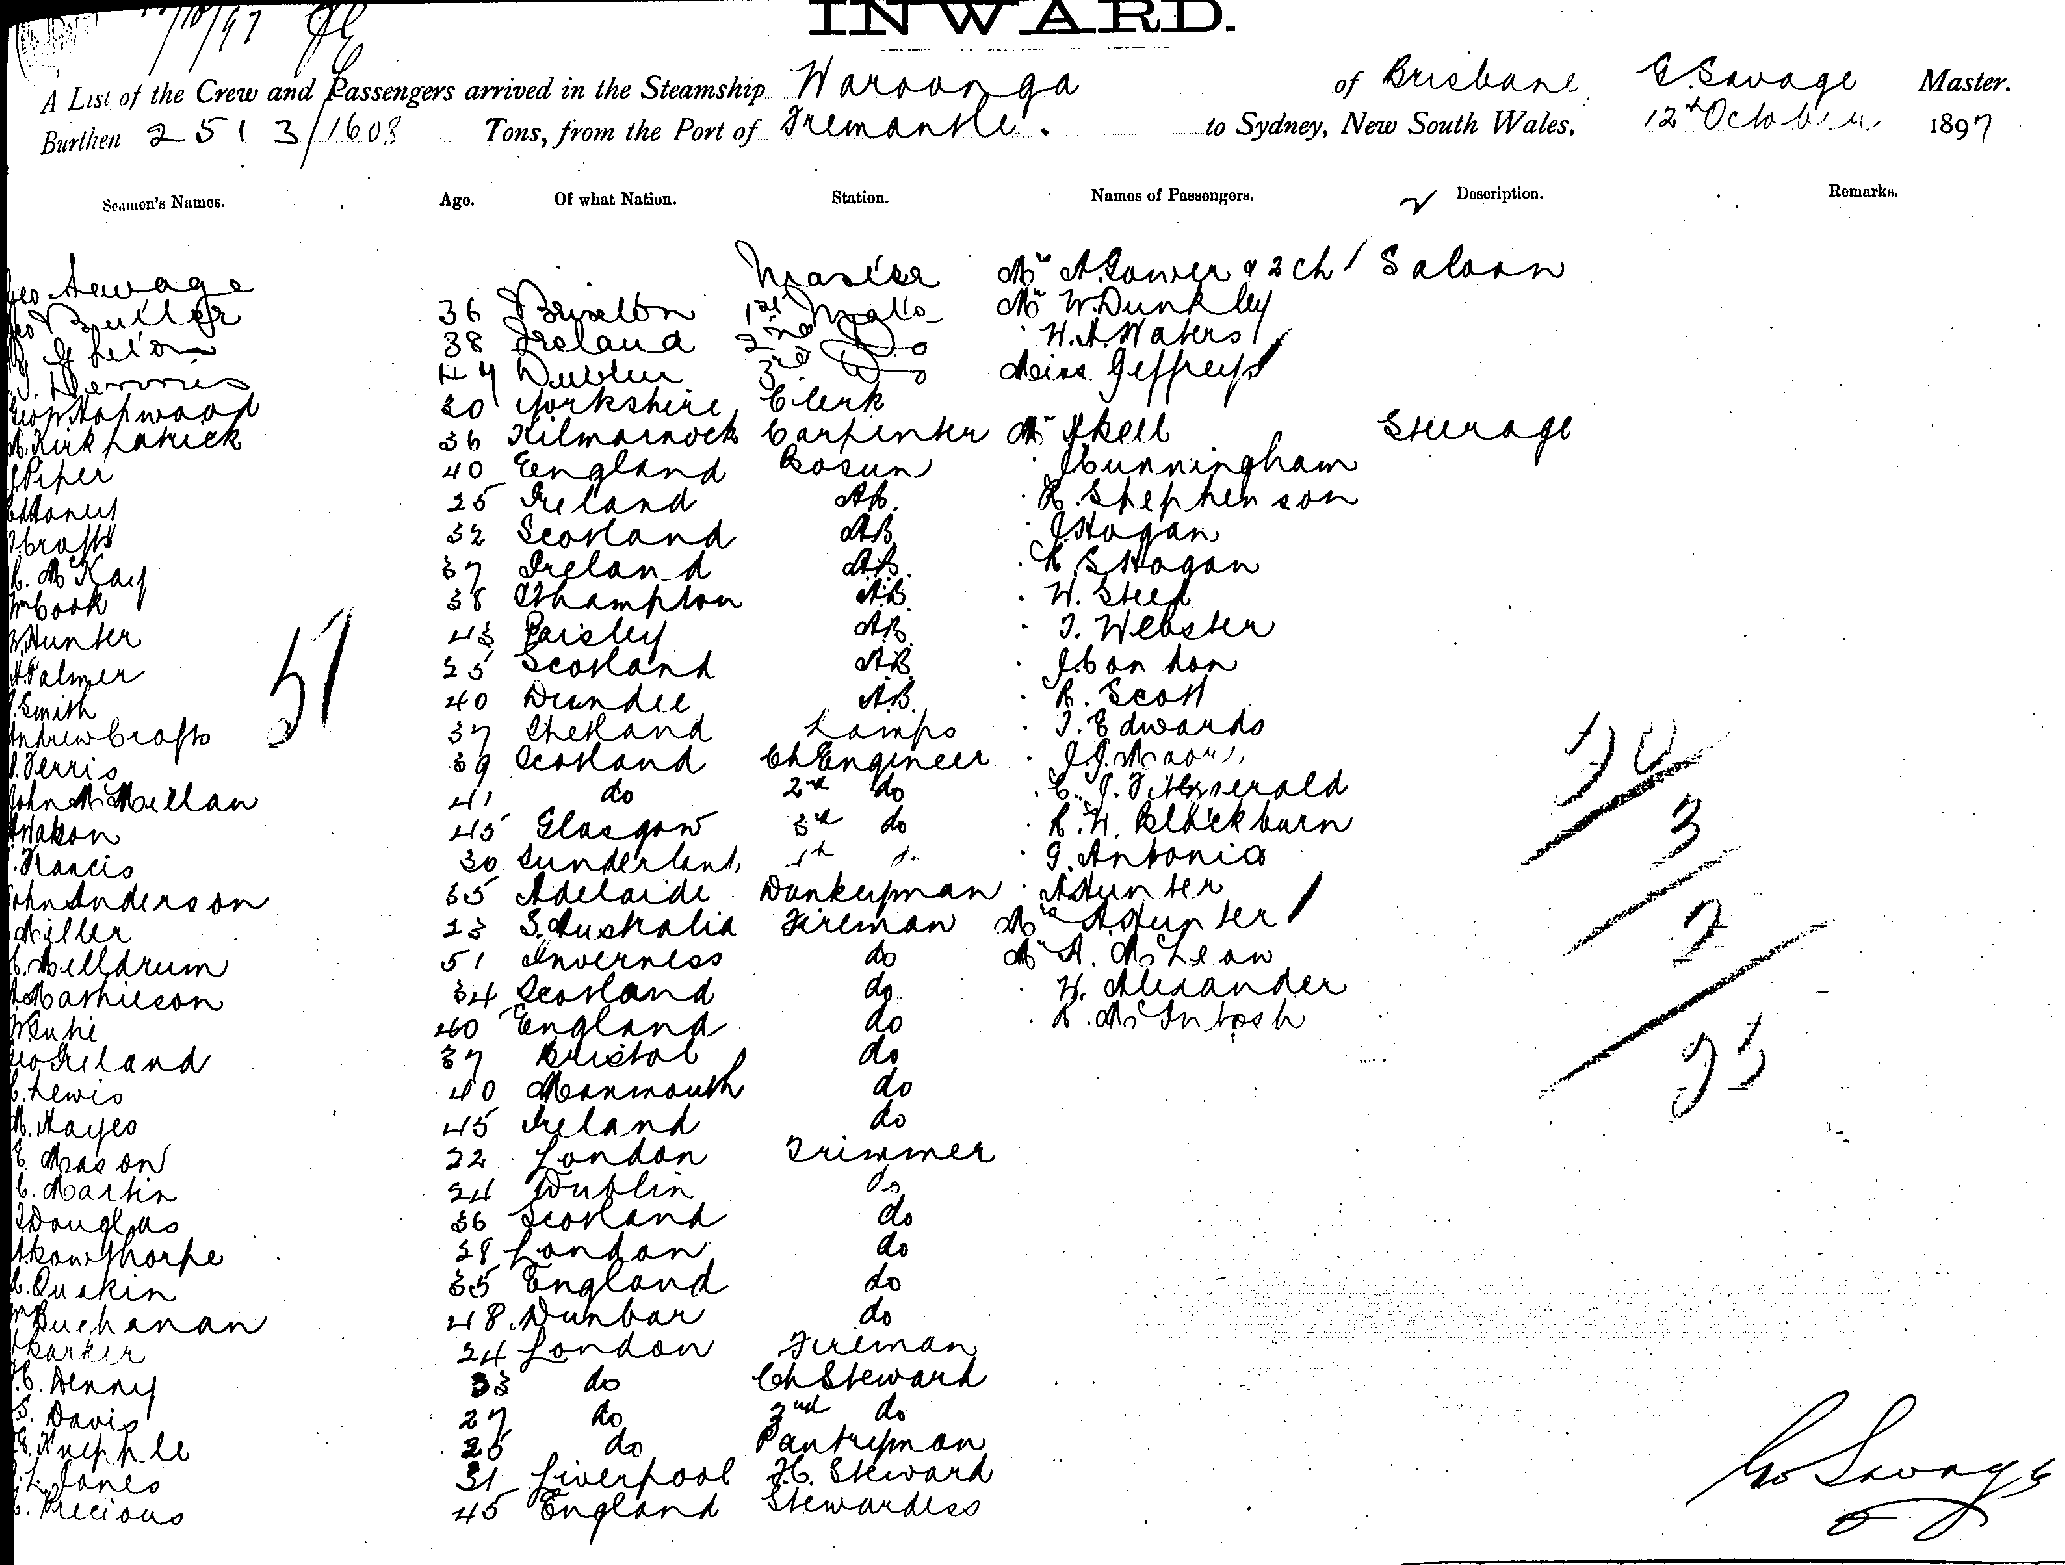 INWARD.
A List of the Crew and Passengers arrived in the Steamship Waroonga of Brisbane, G. Savage Master.
Burthen 2513/1608 Tons, from the Port of Fremantle. to Sydney, New South Wales, 12th October 1897
Seamen's Names. Age. Of what Nation. Station. Names of Passengers. Description. Remarks.
Geo Savage Master Mrs A. Gower & 2 ch Saloon
Geo Butler 36 Brixton 1st Mate Mr W. Dunkley
38 Ireland 2nd Do H. A. Waters
J. Dennis 44 Dublin 3rd Do Miss Jeffreys
Geo W. Hopwood 20 Yorkshire Clerk
A. Kirkpatrick 36 Kilmarnock Carpenter Mr Skell Steerage
J Piper 40 England Bosun J Cunningham
25 Ireland AB. R. Stephenson
Crafts 32 Scotland AB J Hogan
McKay 37 Ireland AB. R. S Hogan
Wm Cook 38 Sthampton AB. W. Steed
W. Hunter 43 Paisley AB T. Webster
A Palmer 25 Scotland AB J. Condon
J. Smith 40 Dundee AB. R. Scott
Andrew Crafts 37 Shetland Lamps T. Edwards
J. Ferris 39 Scotland Ch Engineer J J. Moore
John McMillan 41 do 2nd do C. J. Fitzgerald
Watson 45 Glasgow 3rd do R. W. Blackburn
Francis 30 Sunderland 4th do G. Antonio
John Anderson 35 Adelaide Donkeyman A Hunter
Miller 23 S. Australia Fireman Mrs A. Hunter
C. Melldrum 51 Inverness do Mr A. McLean
Mathieson 34 Scotland do H. Alexander
40 England do R. McIntosh
Geo Ireland 37 Bristol do
C. Lewis 40 Monmouth do
M. Hayes 45 Ireland do
E. Mason 22 London Trimmer
C. Martin 24 Dublin do
J Douglas 36 Scotland do
28 London do
35 England do
Wm Buchanan 48. Dunbar do
Barker 24 London Fireman
C. Denny 33 do Ch Steward
S. Davis 27 do 2nd do
25 do Pantryman
L. Jones 31 Liverpool F.C. Steward
C. Precious 45 England Stewardess
51
3
2
25
Geo Savage